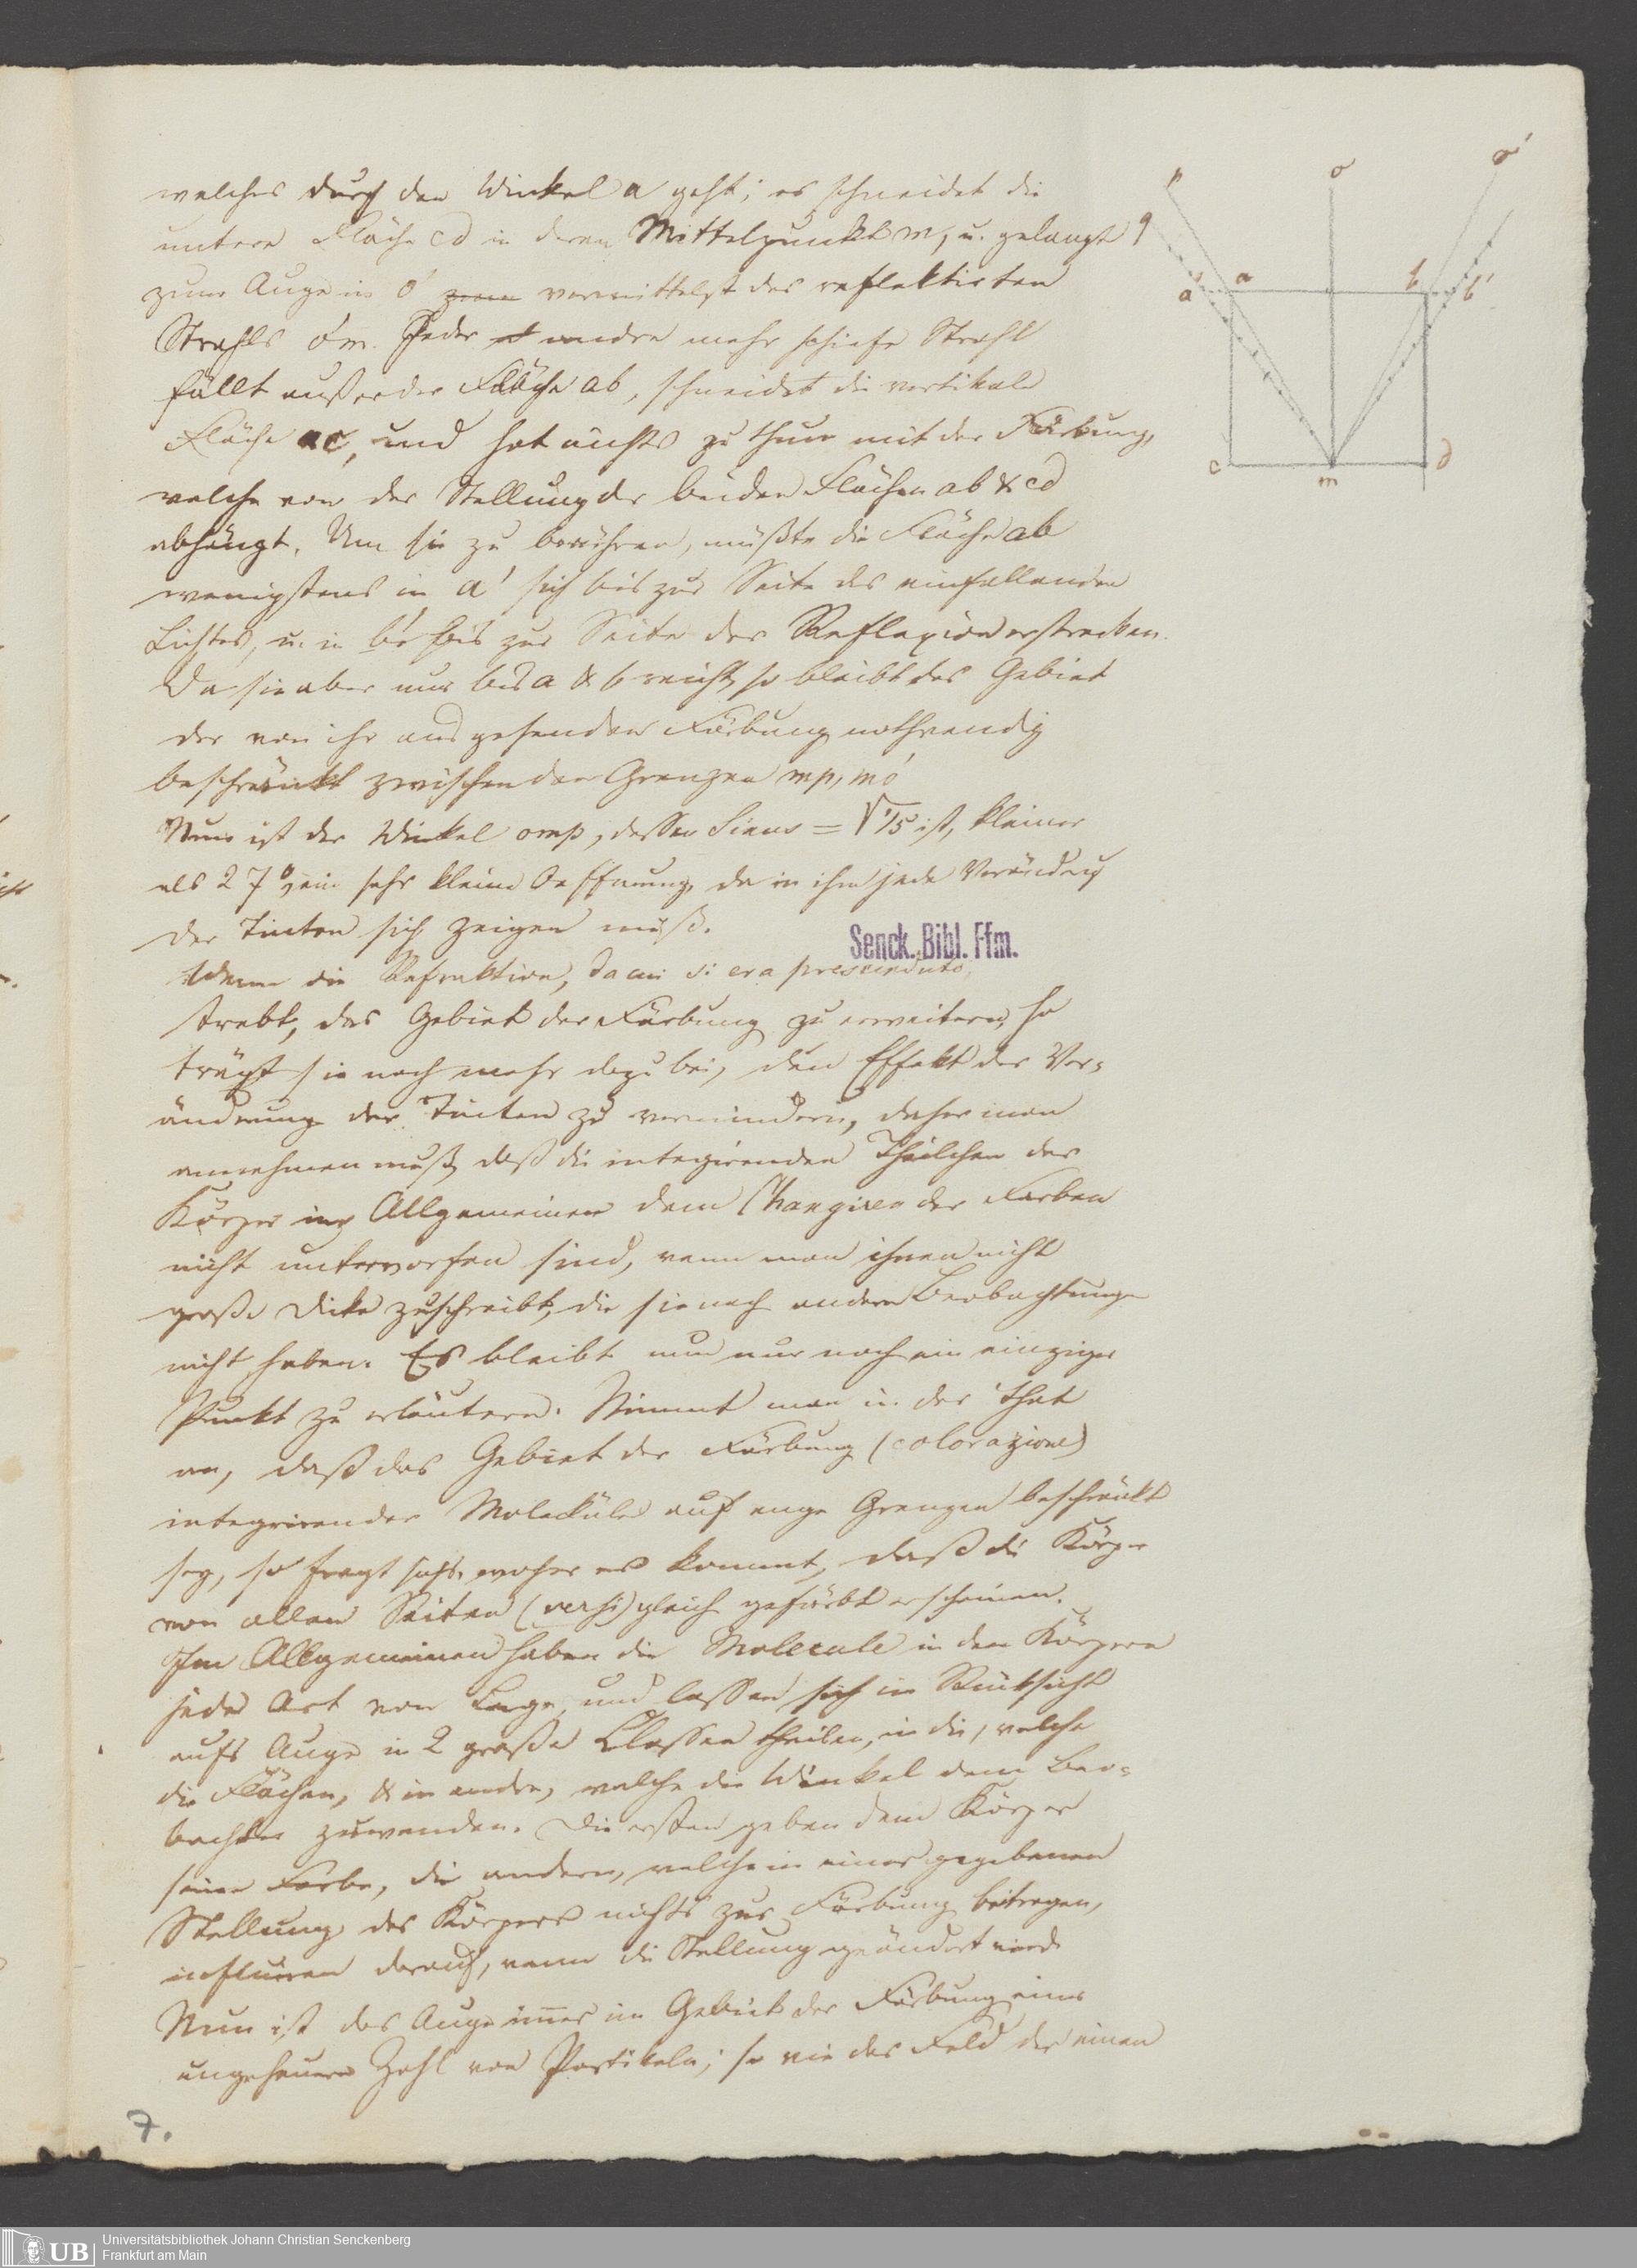 welches durch den Winkel a geht; es schneidet die
untere Fläche cd in deren Mittelpunkt m, u. gelangt
zum Auge in o' vermittelst des reflektirten
Strahls o'm. Jeder andre mehr schiefe Strahl
fällt außer der Fläche ab, schneidet die vertikale
Fläche ac, und hat nichts zu thun mit der Färbung,
welche von der Stellung der beiden Flächen ab & cd
abhängt. Um sie zu berühren, müßte die Fläche ab
wenigstens in a' sich bis zur Seite des einfallenden
Lichtes, u. in b' bis zur Seite der Reflexion erstrecken.
Da sie aber nur bis a & b reicht, so bleibt das Gebiet
der von ihr ausgehenden Färbung nothwendig
beschränkt zwischen den Grenzen mp, mo'
Nun ist der Winkel omp, dessen Sinus = √1/5 ist, kleiner
als 27°, ein sehr kleine Oeffnung, da in ihm jede Veränderung
der Tinten sich zeigen muß.
Wenn die Refraktion, da cui si era prescinduto,
strebt, das Gebiet der Färbung zu erweitern, so
trägt sie noch mehr dazu bei, den Effekt der Ver-
änderung der Tinten zu vermindern, daher man
annehmen muß, daß die integrirenden Theilchen der
Körper im Allgemeinen dem Changiren der Farben
nicht unterworfen sind, wenn man ihnen nicht
große Dicke zuschreibt, die sie nach andern Beobachtungen
nicht haben. Es bleibt nun nur noch ein einziger
Punkt zu erläutern. Nimmt man in der That
an, daß das Gebiet der Färbung (colorazione)
integrirender Moleküle auf enge Grenzen beschränkt
sey, so fragt sichs, woher es kommt, daß die Körper
von allen Seiten (versi) gleich gefärbt erscheinen.
Im Allgemeinen haben die Molecule in den Körpern
jede Art von Lage, und lassen sich in Rücksicht
aufs Auge in 2 große Classen theilen, in die, welche
die Flächen, & in andre, welche die Winkel dem Beo-
bachter zuwenden. Die ersten geben dem Körper
seine Farbe, die andern, welche in einer gegebenen
Stellung des Körpers nichts zur Färbung beitragen,
influiren darauf, wenn die Stellung geändert wird.
Nun ist das Auge imer im Gebiet der Färbung einer
ungeheuren Zahl von Partikeln; so wie das Feld der einen
7.
p o o'
q
a' a b b'
c m d
Senck. Bibl. Ffm.
UB Universitätsbibliothek Johann Christian Senckenberg
Frankfurt am Main